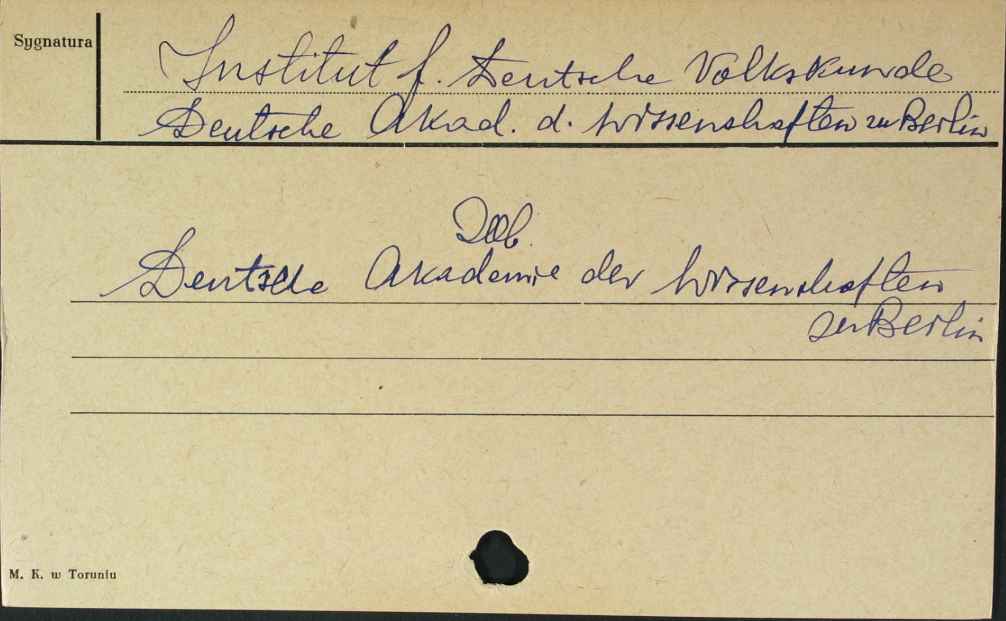 Sygnatura
Institut f. Deutsche Volkskunde
Deutsche Akad. d. Wissenschaften zu Berlin
Zob.
Deutsche Akademie der Wissenschaften
zu Berlin
M. K. w Toruniu